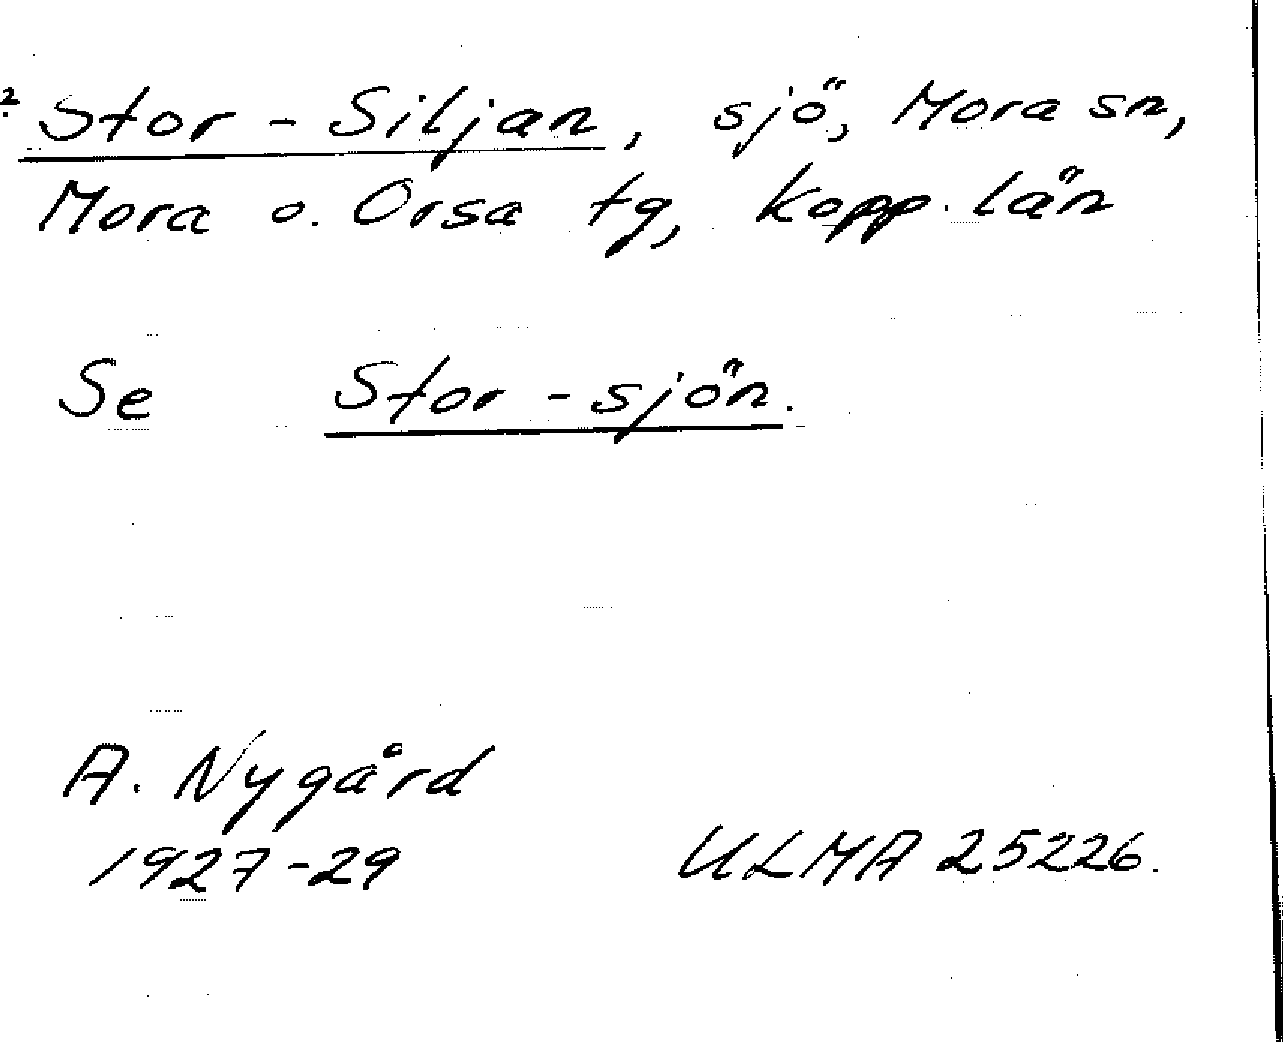 2 Stor-Siljan, sjö, Mora sn,
Mora o. Orsa tg, Kopp. län
Se Stor-sjön.
A. Nygård
1927-29 ULMA 25226.